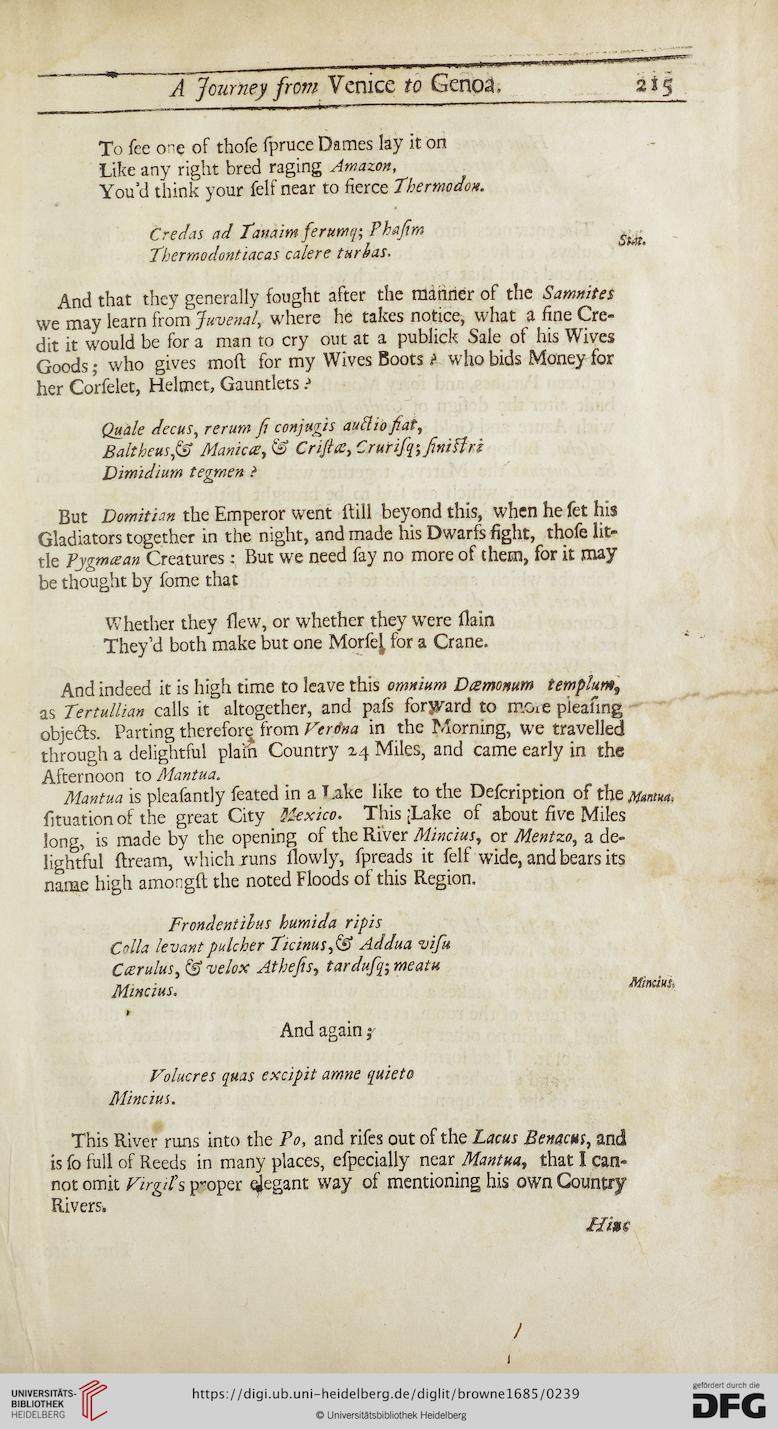 A Journey from Venice to Genoa. 215
To ſee one of thoſe ſpruce Dames lay it on
Like any right bred raging Amazon,
You'd think your ſelf near to fierce Thermodon.
Credas ad Tanaim ferumq; Phaſim
Thermodontiacas calere turbas.
Stat.
And that they generally fought after the manner of the Samnites
we may learn from Juvenal, where he takes notice, what a fine Cre-
dit it would be for a man to cry out at a publick Sale of his Wives
Goods; who gives moſt for my Wives Boots? who bids Money for
her Corſelet, Helmet, Gauntlets?
Quale decus, rerum ſi conjugis auctio fiat,
Baltheus, & Manicæ, & Criſtæ, Cruriſq; ſiniſtri
Dimidium tegmen?
But Domitian the Emperor went ſtill beyond this, when he ſet his
Gladiators together in the night, and made his Dwarfs fight, thoſe lit-
tle Pygmæan Creatures: But we need ſay no more of them, for it may
be thought by ſome that
Whether they ſlew, or whether they were ſlain
They'd both make but one Morſel for a Crane.
And indeed it is high time to leave this omnium Dæmonum templum,
as Tertullian calls it altogether, and paſs forward to more pleaſing
objects. Parting therefore from Verona in the Morning, we travelled
through a delightful plain Country 24 Miles, and came early in the
Afternoon to Mantua.
Mantua is pleaſantly ſeated in a Lake like to the Deſcription of the Mantua.
ſituation of the great City Mexico. This ;Lake of about five Miles
long, is made by the opening of the River Mincius, or Mentzo, a de-
lightful ſtream, which runs ſlowly, ſpreads it ſelf wide, and bears its
name high amongſt the noted Floods of this Region.
Frondentibus humida ripis
Colla levant pulcher Ticinus, & Addua viſu
Cærulus, & velox Atheſis, tarduſq; meatu
Mincius.
Mincius.
And again;
Volucres quas excipit amne quieto
Mincius.
This River runs into the Po, and riſes out of the Lacus Benacus, and
is ſo full of Reeds in many places, eſpecially near Mantua, that I can-
not omit Virgil's proper elegant way of mentioning his own Country
Rivers.
Hinc
UNIVERSITÄTS-
BIBLIOTHEK
HEIDELBERG
https://digi.ub.uni-heidelberg.de/diglit/browne1685/0239
© Universitätsbibliothek Heidelberg
gefördert durch die
DFG